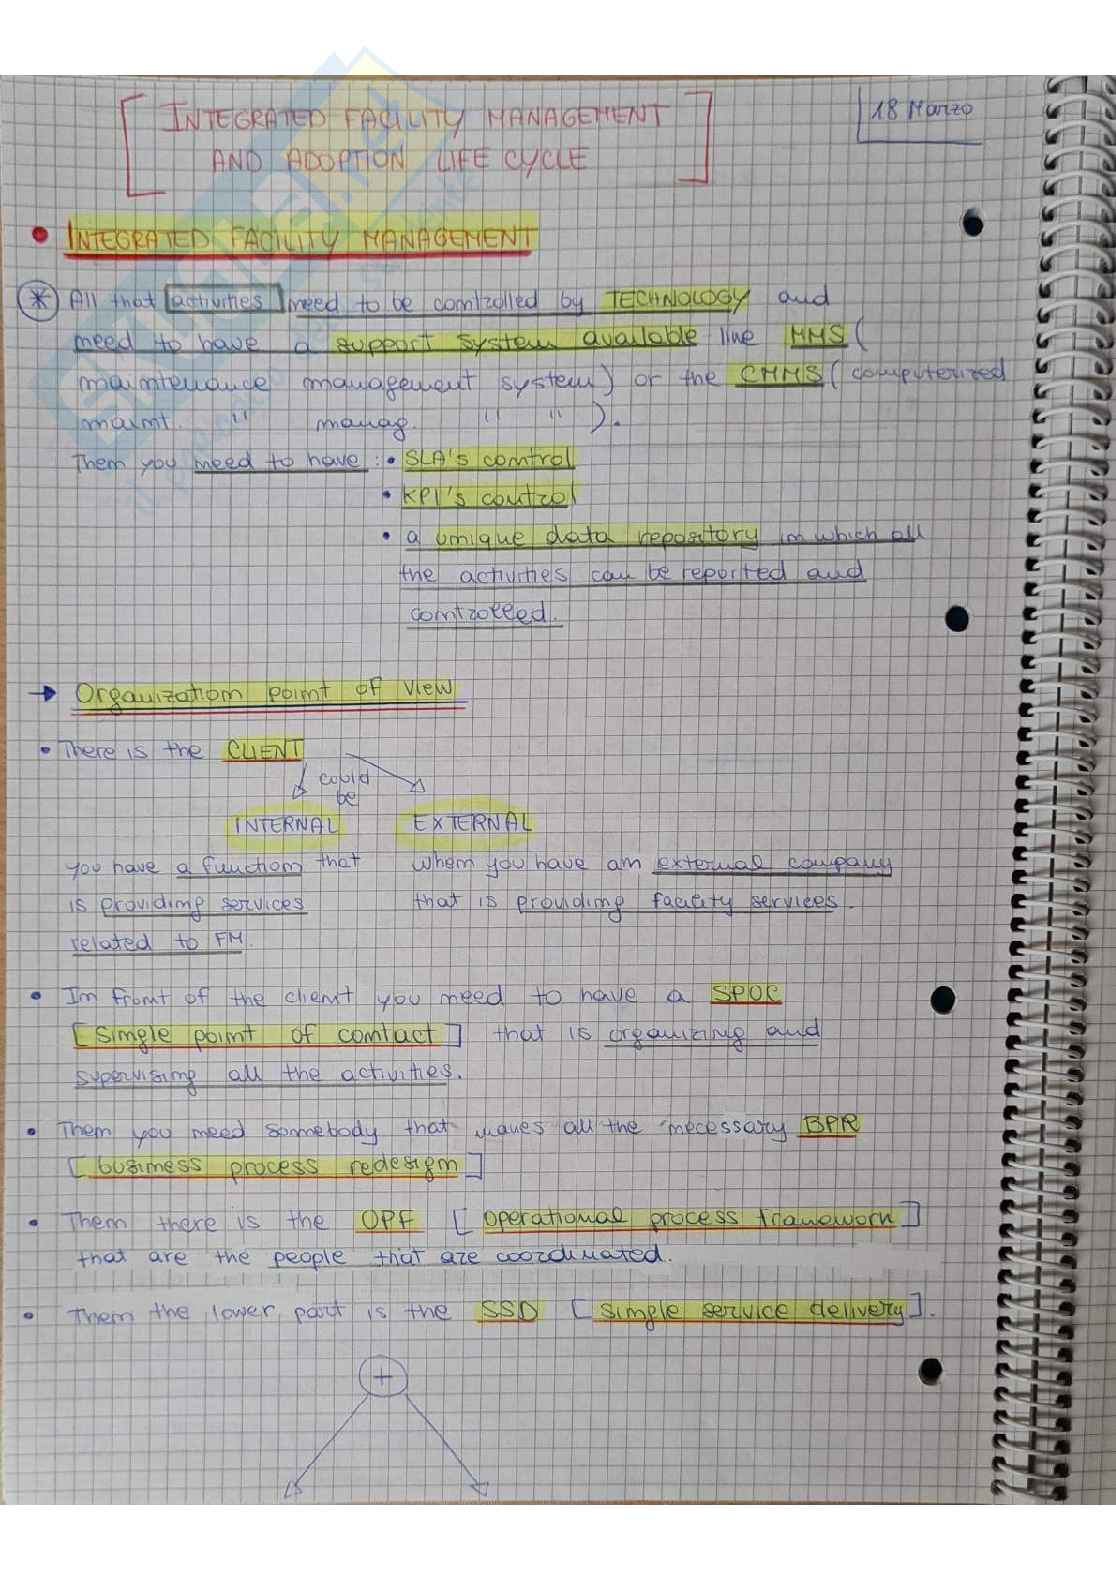 INTEGRATED FACILITY MANAGEMENT
AND ADOPTION LIFE CYCLE
18 Marzo
• INTEGRATED FACILITY MANAGEMENT
* All that activities need to be controlled by TECHNOLOGY and
need to have a support system available like MMS (
maintenance management system) or the CMMS (computerized
maint. " manag. " " ).
Then you need to have: • SLA's control
• KPI's control
• a unique data repository in which all
the activities can be reported and
controlled.
→ Organization point of view
• There is the CLIENT
could
be
INTERNAL EXTERNAL
you have a function that when you have an external company
is providing services that is providing facility services.
related to FM.
• In front of the client you need to have a SPOC
[single point of contact] that is organizing and
supervising all the activities.
• Then you need somebody that makes all the necessary BPR
[business process redesign]
• Then there is the OPF [operational process framework]
that are the people that are coordinated.
• Then the lower part is the SSD [simple service delivery].
+